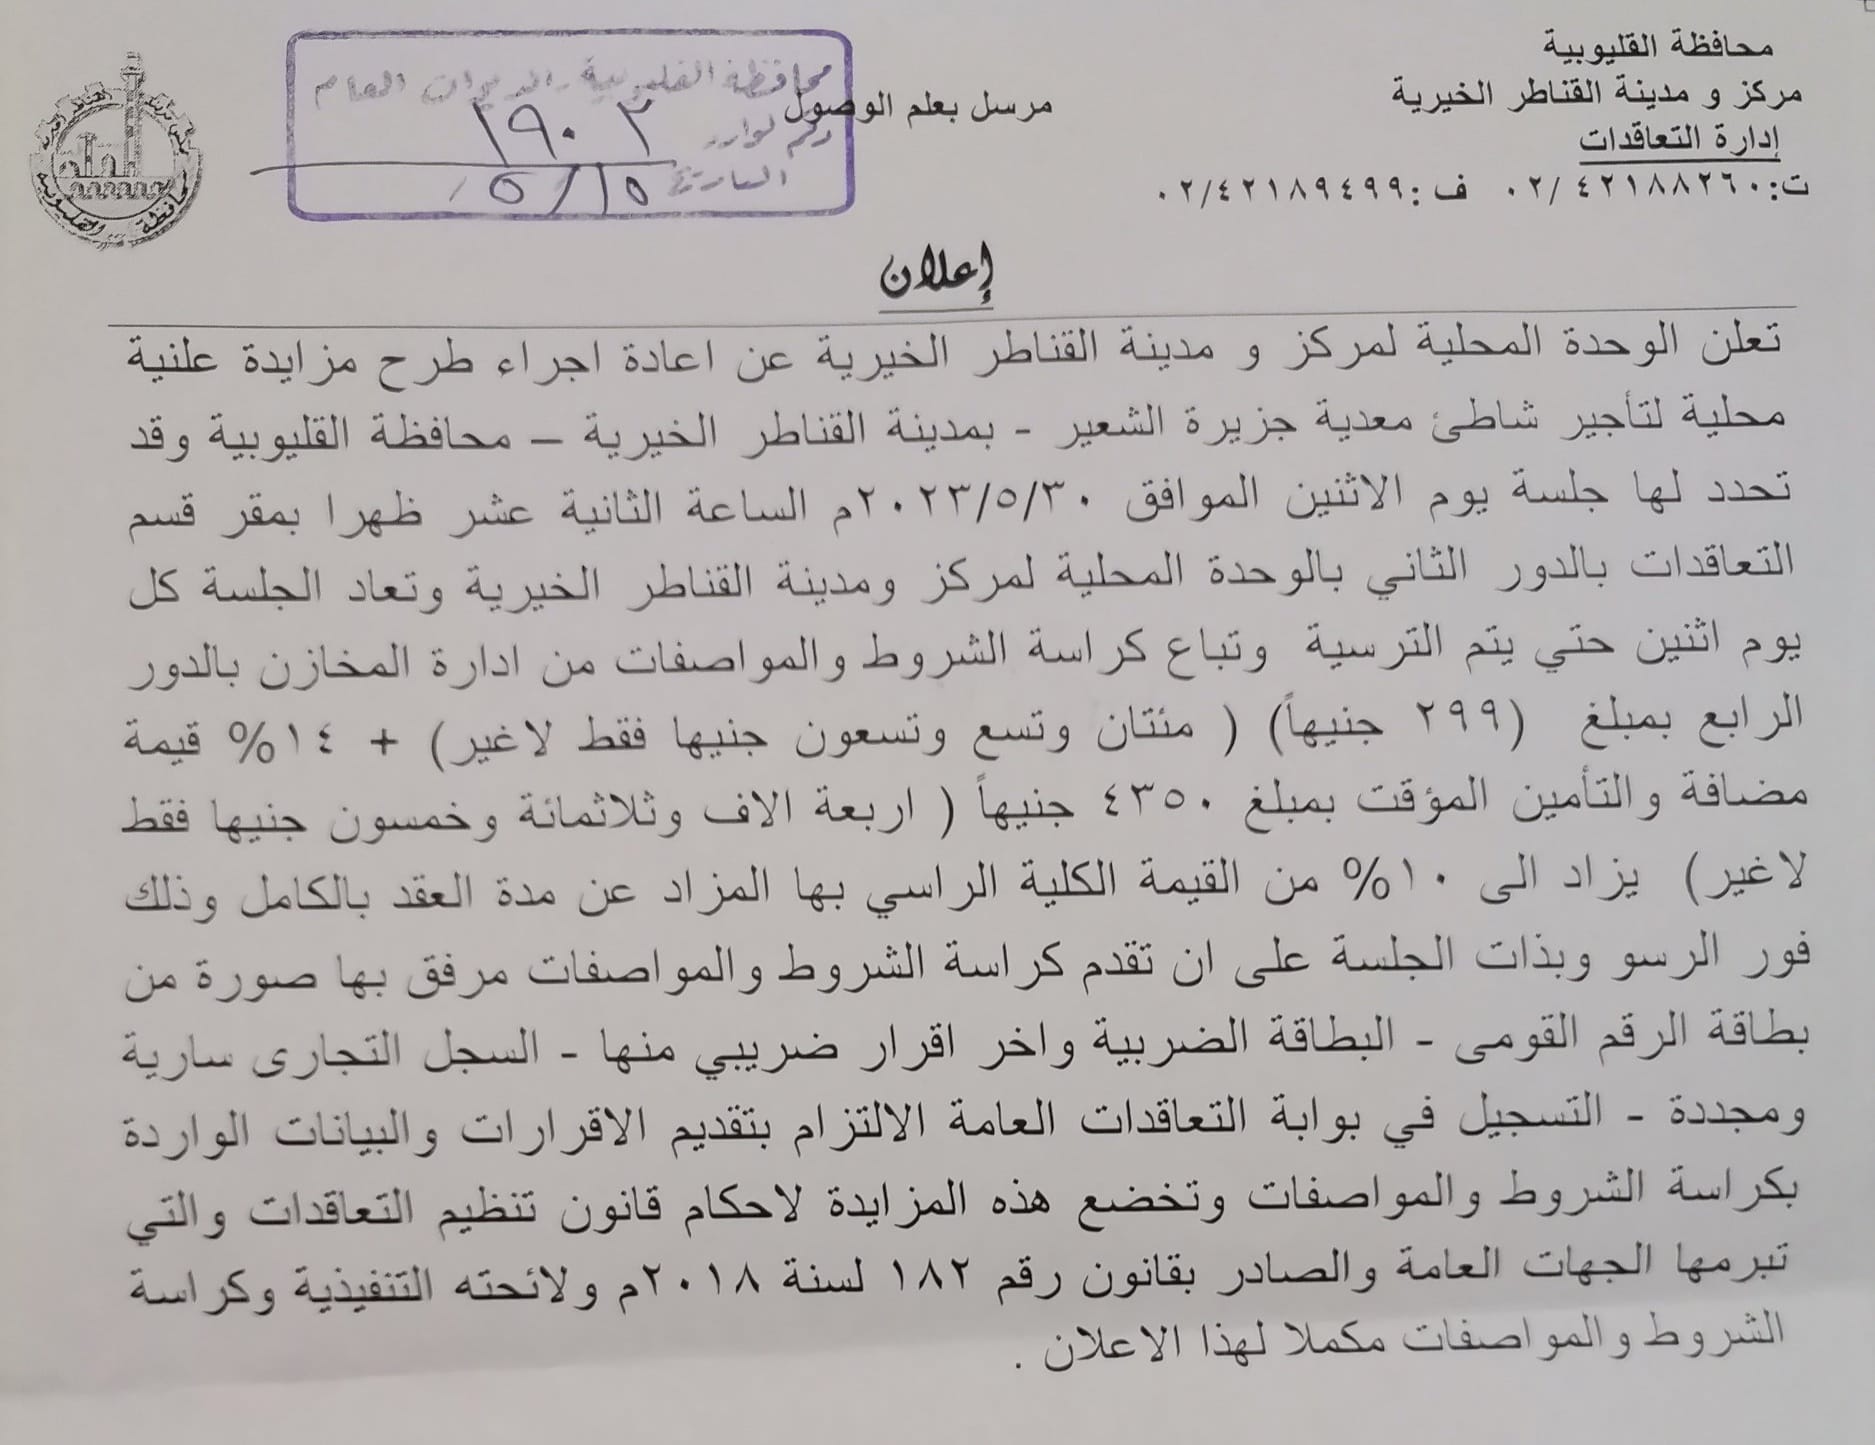 محافظة القليوبية
مركز و مدينة القناطر الخيرية
إدارة التعاقدات
ت: ٠٢/٤٢١٨٨٢٦٠ ف: ٠٢/٤٢١٨٩٤٩٩
مرسل بعلم الوصول
محافظة القليوبية - الديوان العام
رقم الوارد ١٩٠٢
التاريخ ٥/١٥
محافظة القليوبية
إعلان
تعلن الوحدة المحلية لمركز و مدينة القناطر الخيرية عن اعادة اجراء طرح مزايدة علنية
محلية لتأجير شاطئ معدية جزيرة الشعير - بمدينة القناطر الخيرية – محافظة القليوبية وقد
تحدد لها جلسة يوم الاثنين الموافق ٢٠٢٣/٥/٣٠م الساعة الثانية عشر ظهرا بمقر قسم
التعاقدات بالدور الثاني بالوحدة المحلية لمركز ومدينة القناطر الخيرية وتعاد الجلسة كل
يوم اثنين حتي يتم الترسية وتباع كراسة الشروط والمواصفات من ادارة المخازن بالدور
الرابع بمبلغ (٢٩٩ جنيهاً) ( مئتان وتسع وتسعون جنيها فقط لاغير) + ١٤% قيمة
مضافة والتأمين المؤقت بمبلغ ٤٣٥٠ جنيهاً ( اربعة الاف وثلاثمائة وخمسون جنيها فقط
لاغير) يزاد الى ١٠% من القيمة الكلية الراسي بها المزاد عن مدة العقد بالكامل وذلك
فور الرسو وبذات الجلسة على ان تقدم كراسة الشروط والمواصفات مرفق بها صورة من
بطاقة الرقم القومى - البطاقة الضربية واخر اقرار ضريبي منها - السجل التجارى سارية
ومجددة - التسجيل في بوابة التعاقدات العامة الالتزام بتقديم الاقرارات والبيانات الواردة
بكراسة الشروط والمواصفات وتخضع هذه المزايدة لاحكام قانون تنظيم التعاقدات والتي
تبرمها الجهات العامة والصادر بقانون رقم ١٨٢ لسنة ٢٠١٨م ولائحته التنفيذية وكراسة
الشروط والمواصفات مكملا لهذا الاعلان .